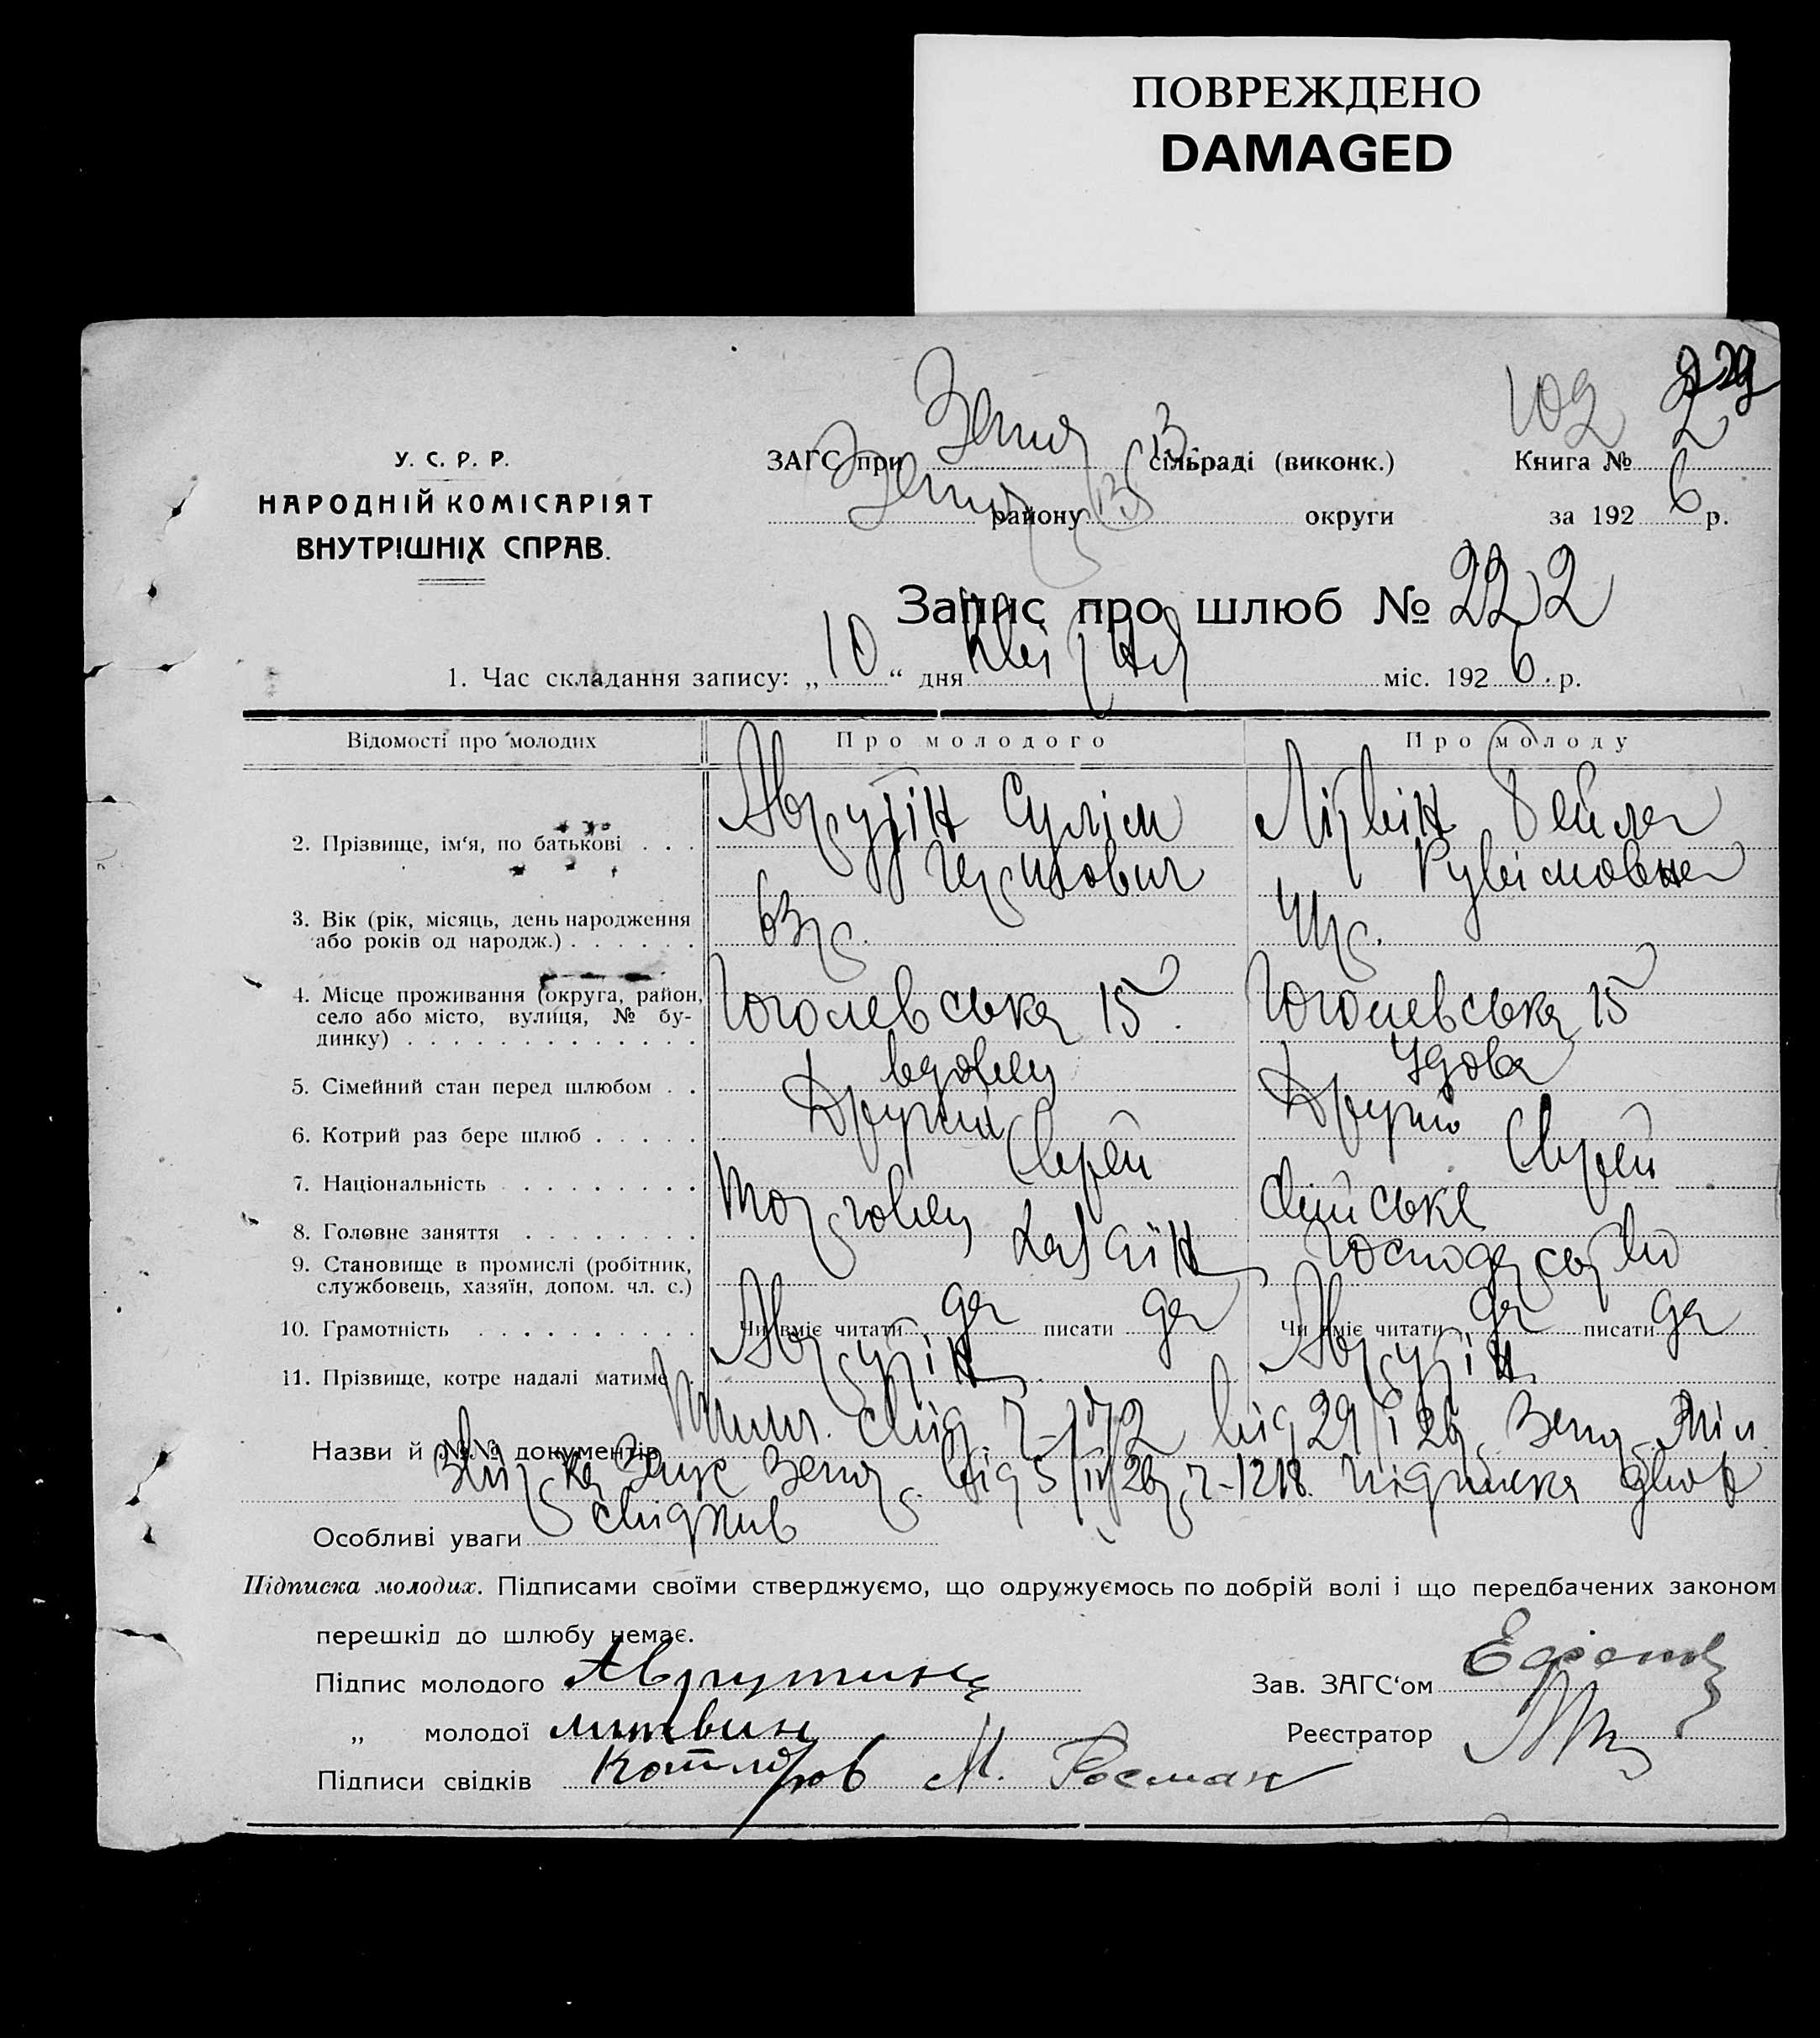 ПОВРЕЖДЕНО
DAMAGED
102
2
У. С. Р. Р.
НАРОДНІЙ КОМІСАРІЯТ
ВНУТРІШНІХ СПРАВ.
ЗАГС при сільраді (виконк.) Книга №
району округи за 1926 р.
Запис про шлюб № 222
1. Час складання запису: „10“ дня Квітня міс. 1926.р.
Відомості про молодих Про молодого Про молоду
2. Прізвище, ім‘я, по батькові . . . Аврутін Сулім Літвін Бейла
Рувімовна
3. Вік (рік, місяць, день народження
або років од народж.) . . . . . . 63 р.
4. Місце проживання (округа, район,
село або місто, вулиця, № бу-
динку) . . . . . . . . . . . . . Гоголевська 15. Гоголевська 15
5. Сімейний стан перед шлюбом . . вдовец Удова
6. Котрий раз бере шлюб . . . . . Другий Другий
7. Національність . . . . . . . . . Єврей Єврей
8. Головне заняття . . . . . . . . Торговец Сільське
9. Становище в промислі (робітник,
службовець, хазяїн, допом. чл. с.) Хазяїн господарство
10. Грамотність . . . . . . . . . . Чи вміє читати да писати да Чи вміє читати да писати да
11. Прізвище, котре надалі матиме . Аврутін Аврутін
Назви й №№ документів від 29/I 26
від 5/IV 26 1218. підписка двох
Особливі уваги свідків
Підписка молодих. Підписами своїми стверджуємо, що одружуємось по добрій волі і що передбачених законом
перешкід до шлюбу немає.
Підпис молодого Аврутин Зав. ЗАГС‘ом
„ молодої литвин Реєстратор
Підписи свідків М. Росман